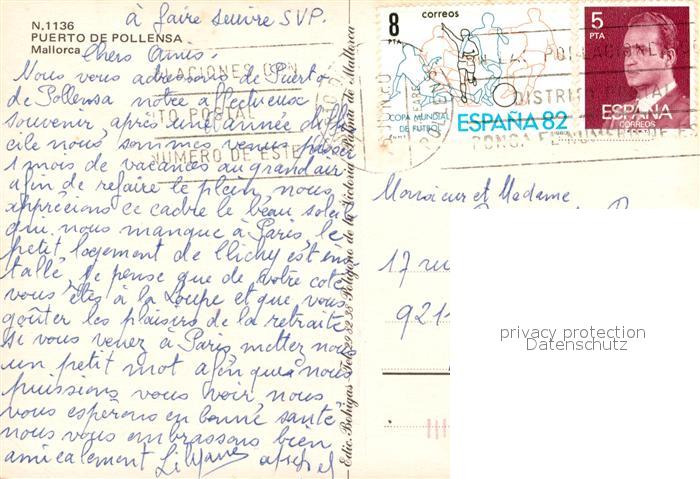 à faire suivre SVP.
N.1136
PUERTO DE POLLENSA
Mallorca
Chers Amis.
Nous vous adressons de Puerto
de Pollensa notre affectueux
souvenir, après une année diffi
cile nous sommes venus passer
1 mois de vacances au grand air
afin de refaire le plein, nous
apprécions ce cadre le beau soleil
qui nous manque à Paris, le
petit logement de Clichy est ins
tallé, je pense que de votre coté
vous êtes à la Loupe et que vous
goûter les plaisirs de la retraite
si vous venez à Paris mettez nous
un petit mot afin que nous
puissions vous voir, nous
vous espérons en bonne santé
nous vous embrassons bien
amicalement Liliane
Edic. Bohigas
8
PTA
correos
COPA MUNDIAL
DE FUTBOL
ESPAÑA 82
5
PTA
ESPAÑA
CORREOS
RELACIONES CON
DISTRITO POSTAL
PONGA EL NUMERO DE ESTE
Monsieur et Madame
17 rue
921
privacy protection
Datenschutz